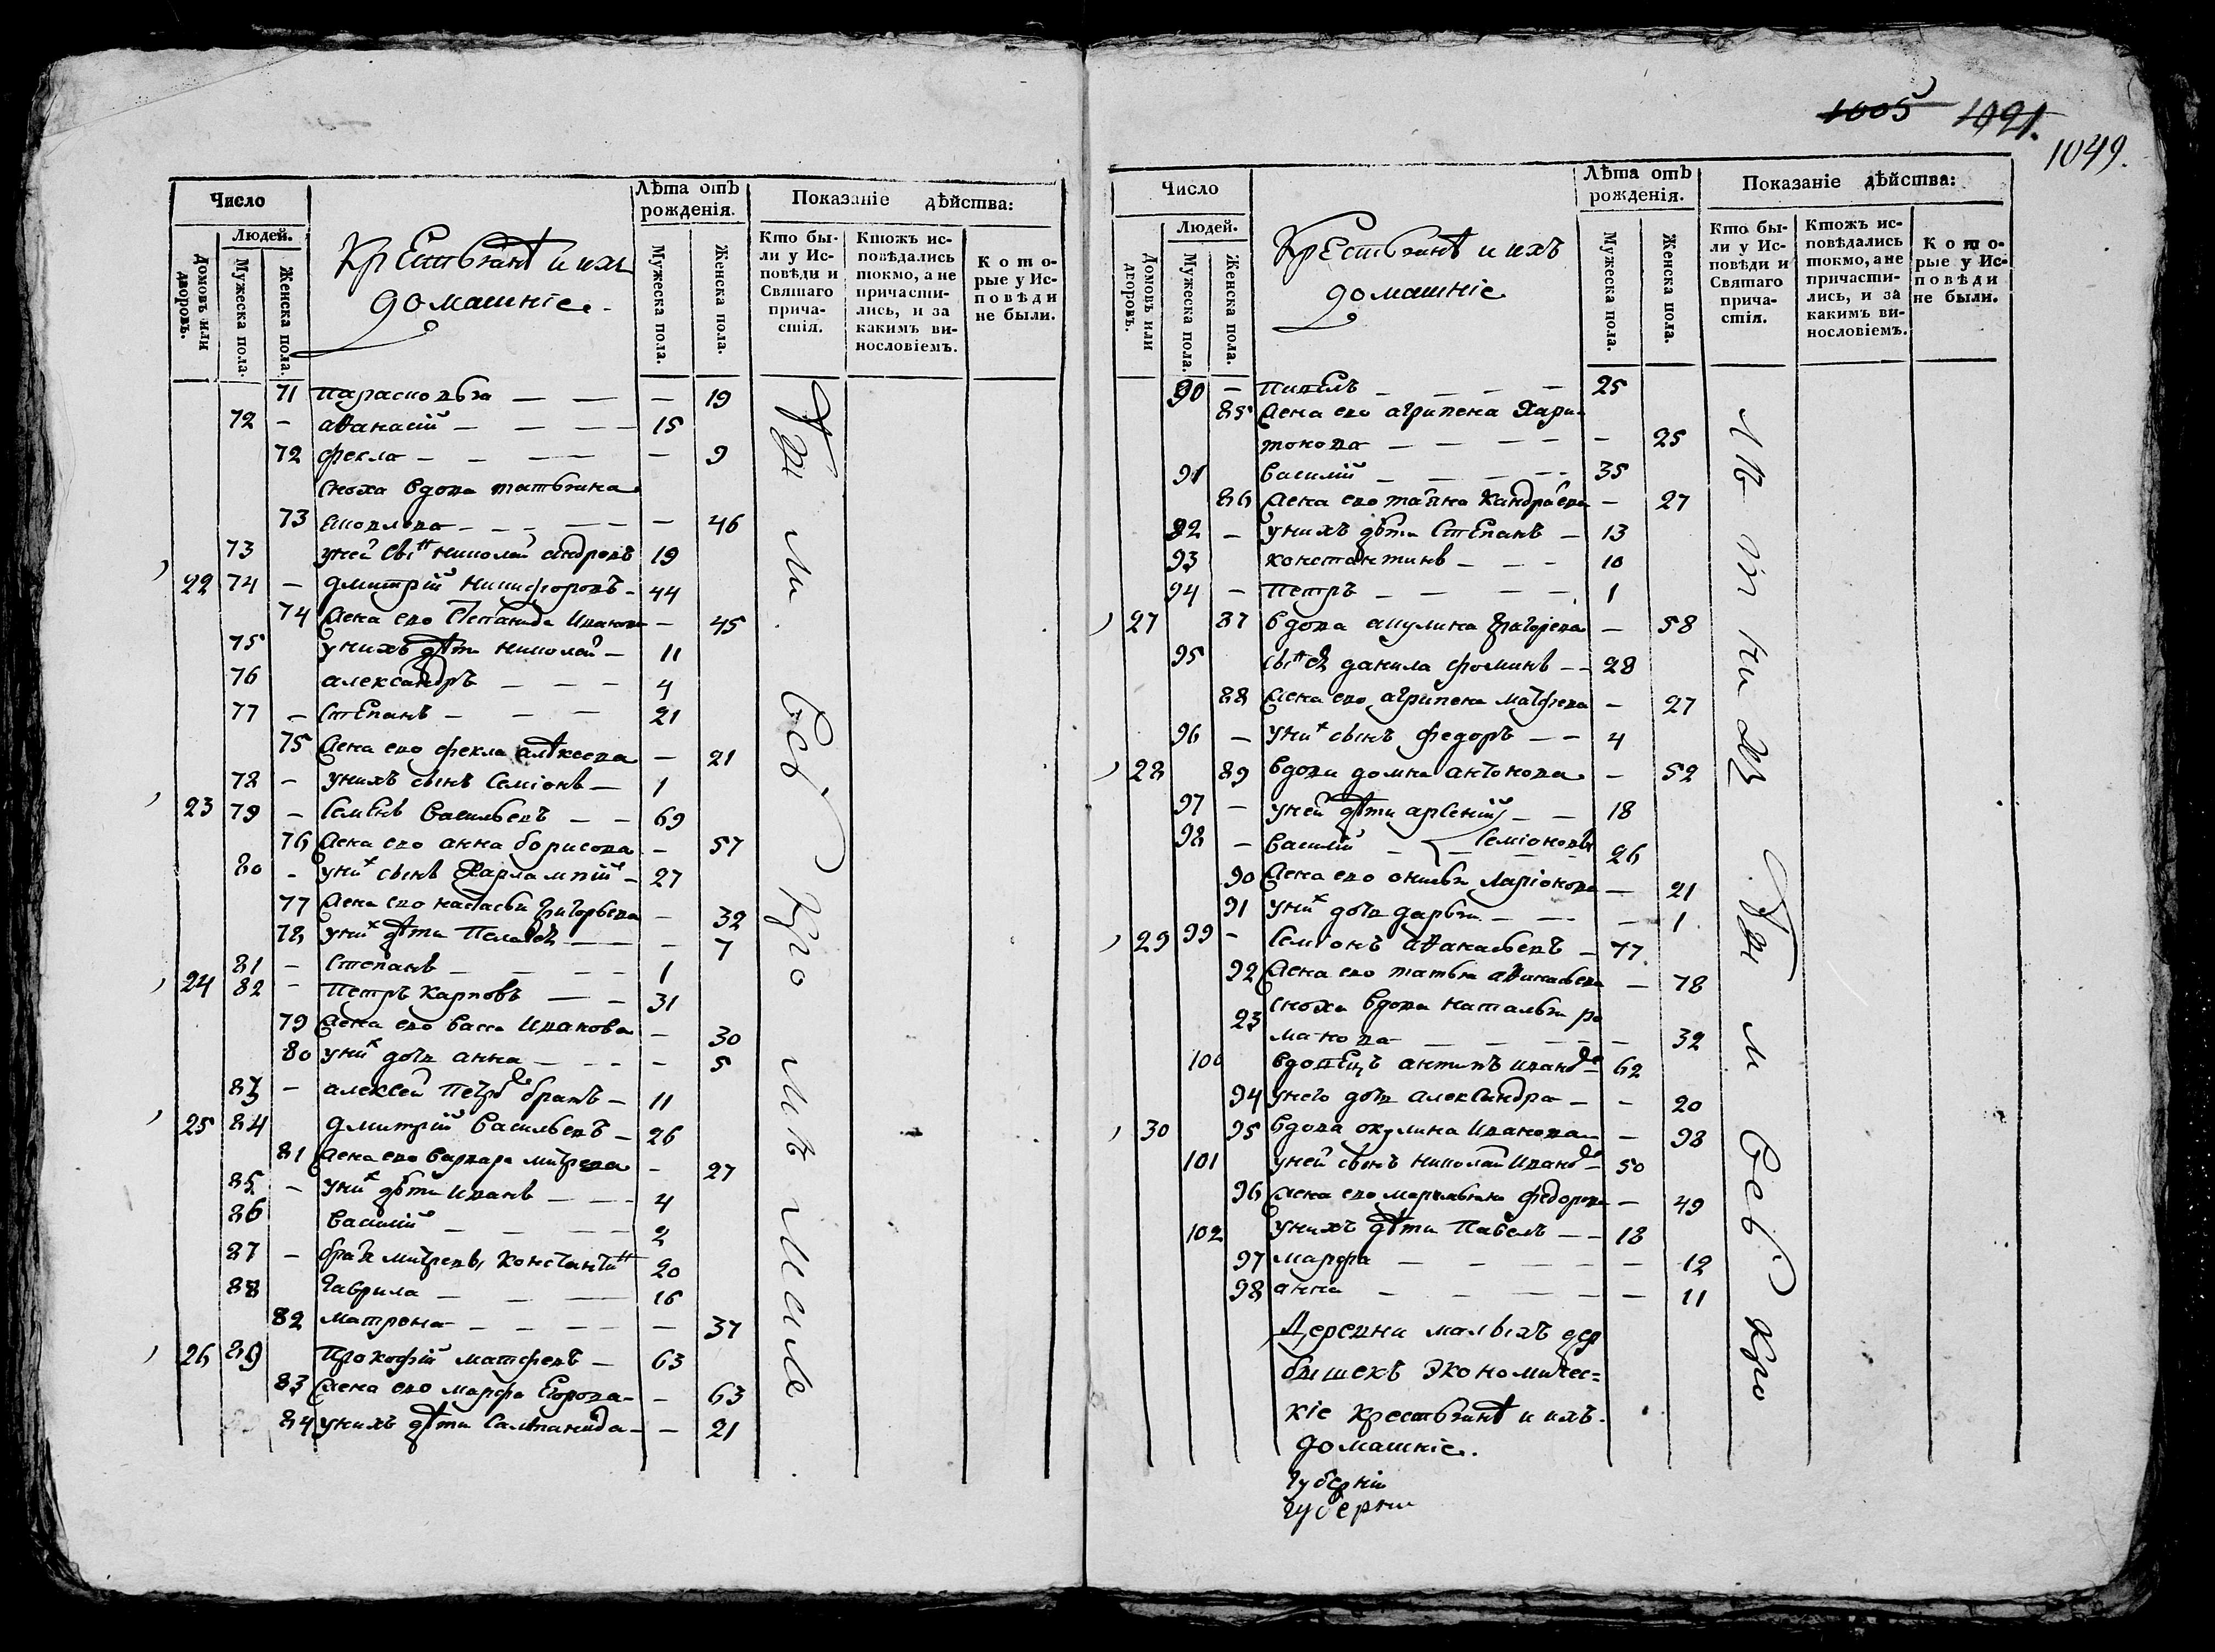 1005 1091.
1049.
Число
Людей.
Домовъ или дворовъ.
Мужеска пола.
Женска пола.
Крестьянѣ и ихъ
домашніе.
Лѣта отъ рожденія.
Мужеска пола.
Женска пола.
Показаніе дѣйства:
Кто бы-
ли у Ис-
повѣди и
Святаго
прича-
стія.
Ктожъ ис-
повѣдались
токмо, а не
причасти-
лись, и за
какимъ ви-
нословіемъ.
Кото-
рые у Ис-
повѣди
не были.
71 Парасковья — — — 19
72 - аѳанасій — — — 15
72 фекла — — — 9
сноха вдова татьяна
73 — — — 46
73 уней сынъ николай андревъ 19
22 74 — дмитрій никифоровъ - 44
74 жена ево степанида иванова — 45
75 унихъ дѣти николай — 11
76 александръ — — — 4
77 — степанъ — — — 21
75 жена ево фекла алѣксева — 21
78 — унихъ сынъ семіонъ — 1
23 79 — семенъ васильевъ — — 69
76 жена ево анна борисова — 57
80 - унихъ сынъ харлампій - 27
77 жена ево настасья григорьева — 32
78 унихъ дѣти — — — 7
81 — степанъ — — — 1
24 82 - петръ карповъ — — 31
79 жена ево васса иванова — 30
80 унихъ дочь анна — — — 5
83 — алексей петровъ братъ — 11
25 84 дмитрій васильевъ — 26
81 жена ево варвара митрева — 27
85 — унихъ дѣти иванъ — — 4
86 василій — — — 2
87 — братья митревы константинъ 20
88 гаврила — — — 16
82 матрона — — — 37
26 89 прокофій матфевъ — 63
83 жена ево марфа егорова — — 63
84 унихъ дѣти — — 21
При всей
Число
Людей.
Домовъ или дворовъ.
Мужеска пола.
Женска пола.
Крестьянѣ и ихъ
домашніе
Лѣта отъ рожденія.
Мужеска пола.
Женска пола.
Показаніе дѣйства:
Кто бы-
ли у Ис-
повѣди и
Святаго
прича-
стія.
Ктожъ ис-
повѣдались
токмо, а не
причасти-
лись, и за
какимъ ви-
нословіемъ.
Кото-
рые у Ис-
повѣди
не были.
90 — — — — 25
85 жена ево агрипена хари-
тонова — — — — 25
91 василій — — — 35
86 жена ево кандрасва — 27
92 — унихъ дѣти степанъ — 13
93 константинъ — — — 10
94 — петръ — — — 1
27 87 вдова акулина григорева — 58
95 сынъ ея данила фоминъ — — 28
88 жена ево агрипена матфева — 27
96 — унихъ сынъ федоръ — — 4
28 89 вдова домна антонова — 52
97 — уней дѣти арсеній — — 18
98 — василій — семіоновы 26
90 жена ево ларіонова — 21
91 унихъ дочь дарья — — — 1
29 99 — семіонъ аѳанасьевъ — 77
92 жена ево татьяна аѳанасьева — 78
93 сноха вдова наталья ро
манова — — — — 32
100 вдовецъ антипъ ивановъ — 62
94 унего дочь александра — — 20
30 95 вдова окулина иванова — 98
101 уней сынъ николай ивановъ — 50
96 жена ево федорова — 49
102 унихъ дѣти павелъ — — 18
97 марфа — — — — 12
98 анна — — — — 11
Деревни малыхъ дер
бышекъ экономичес=
кіе крестьянѣ и ихъ
домашніе.
губерніи
губерни
При всей